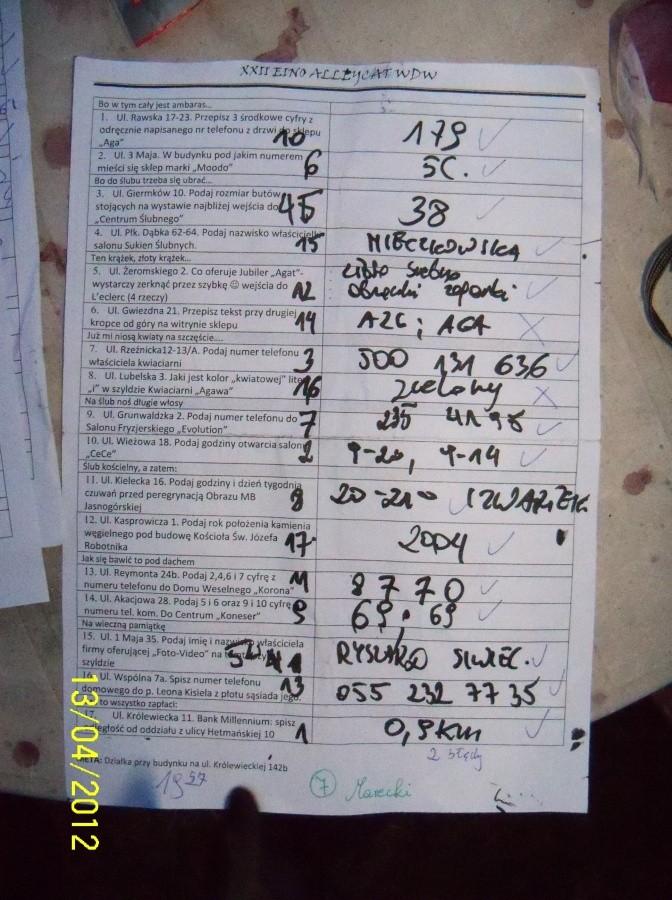 XXII EINO ALLEYCAT WDW
Bo w tym cały jest ambaras...
1. Ul. Rawska 17-23. Przepisz 3 środkowe cyfry z
odręcznie napisanego nr telefonu z drzwi do sklepu
„Aga"
10
179
2. Ul. 3 Maja. W budynku pod jakim numerem
mieści się sklep marki „Moodo"
6
5C.
Bo do ślubu trzeba się ubrać...
3. Ul. Giermków 10. Podaj rozmiar butów
stojących na wystawie najbliżej wejścia do
„Centrum Ślubnego"
45
38
4. Ul. Płk. Dąbka 62-64. Podaj nazwisko właścicielki
salonu Sukien Ślubnych.
15
MIECZKOWSKA
Ten krążek, złoty krążek...
5. Ul. Żeromskiego 2. Co oferuje Jubiler „Agat"-
wystarczy zerknąć przez szybkę ☺ wejścia do
L'eclerc (4 rzeczy)
12
złoto srebro
obrączki zegarki
6. Ul. Gwiezdna 21. Przepisz tekst przy drugiej
kropce od góry na witrynie sklepu
14
AZG; AGA
Już mi niosą kwiaty na szczęście....
7. Ul. Rzeźnicka12-13/A. Podaj numer telefonu
właściciela kwiaciarni
3
500 131 636
8. Ul. Lubelska 3. Jaki jest kolor „kwiatowej" litery
„i" w szyldzie Kwiaciarni „Agawa"
16
zielony
Na ślub noś długie włosy
9. Ul. Grunwaldzka 2. Podaj numer telefonu do
Salonu Fryzjerskiego „Evolution"
7
235 41 98
10. Ul. Wieżowa 18. Podaj godziny otwarcia salonu
„CeCe"
2
9-20, 9-14
Ślub kościelny, a zatem:
11. Ul. Kielecka 16. Podaj godziny i dzień tygodnia
czuwań przed peregrynacją Obrazu MB
Jasnogórskiej
8
20-21
12. Ul. Kasprowicza 1. Podaj rok położenia kamienia
węgielnego pod budowę Kościoła Św. Józefa
Robotnika
17
2004
Jak się bawić to pod dachem
13. Ul. Reymonta 24b. Podaj 2,4,6 i 7 cyfrę z
numeru telefonu do Domu Weselnego „Korona"
11
8770
14. Ul. Akacjowa 28. Podaj 5 i 6 oraz 9 i 10 cyfrę
numeru tel. kom. Do Centrum „Koneser"
9
69; 69
Na wieczną pamiątkę
15. Ul. 1 Maja 35. Podaj imię i nazwisko właściciela
firmy oferującej „Foto-Video" na
szyldzie
RYSZARD SIWIEC.
Ul. Wspólna 7a. Spisz numer telefonu
domowego do p. Leona Kisiela z płotu sąsiada jego.
13
055 232 77 35
to wszystko zapłaci:
17. Ul. Królewiecka 11. Bank Millennium: spisz
odległość od oddziału z ulicy Hetmańskiej 10
1
0,9 km
META: Działka przy budynku na ul. Królewieckiej 142b
2 błędy
19 57
7 Marecki
13/04/2012